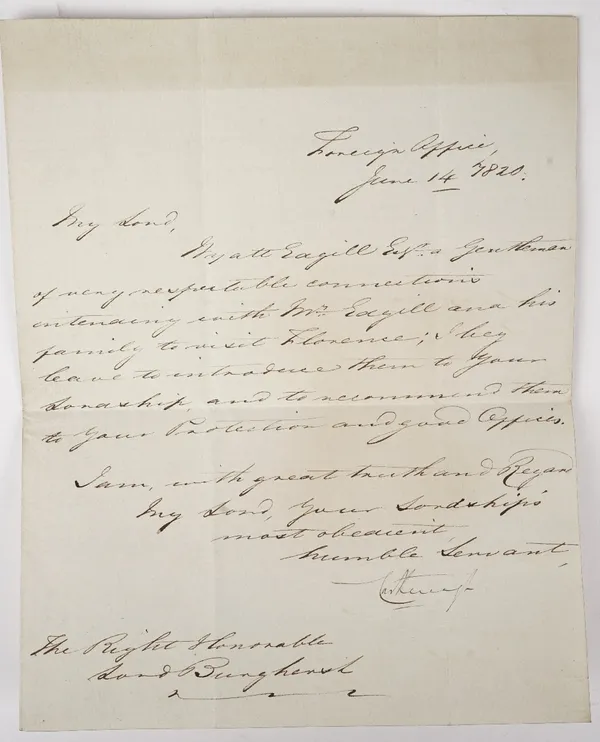 Foreign Office,
June 14 1820.
My Lord,
Wyatt Edgill Esqr. a Gentleman
of very respectable connections
intending with Mrs. Edgill and his
family to visit Florence; I beg
leave to introduce them to Your
Lordship, and to recommend them
to Your Protection and good Offices.
I am, with great truth and Regard
My Lord, Your Lordship's
most obedient,
humble Servant,
Castlereagh
The Right Honorable
Lord Burghersh